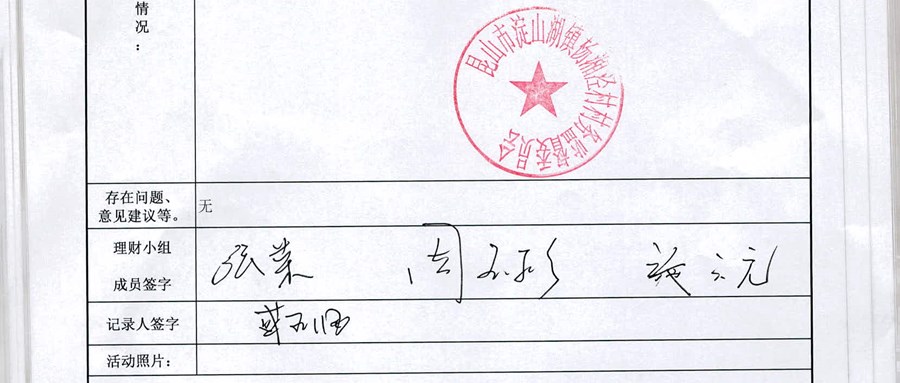 情
况
：
昆山市淀山湖镇杨湘泾村村务监督委员会
存在问题、
意见建议等。
无
理财小组
成员签字
张荣 周
记录人签字
活动照片：